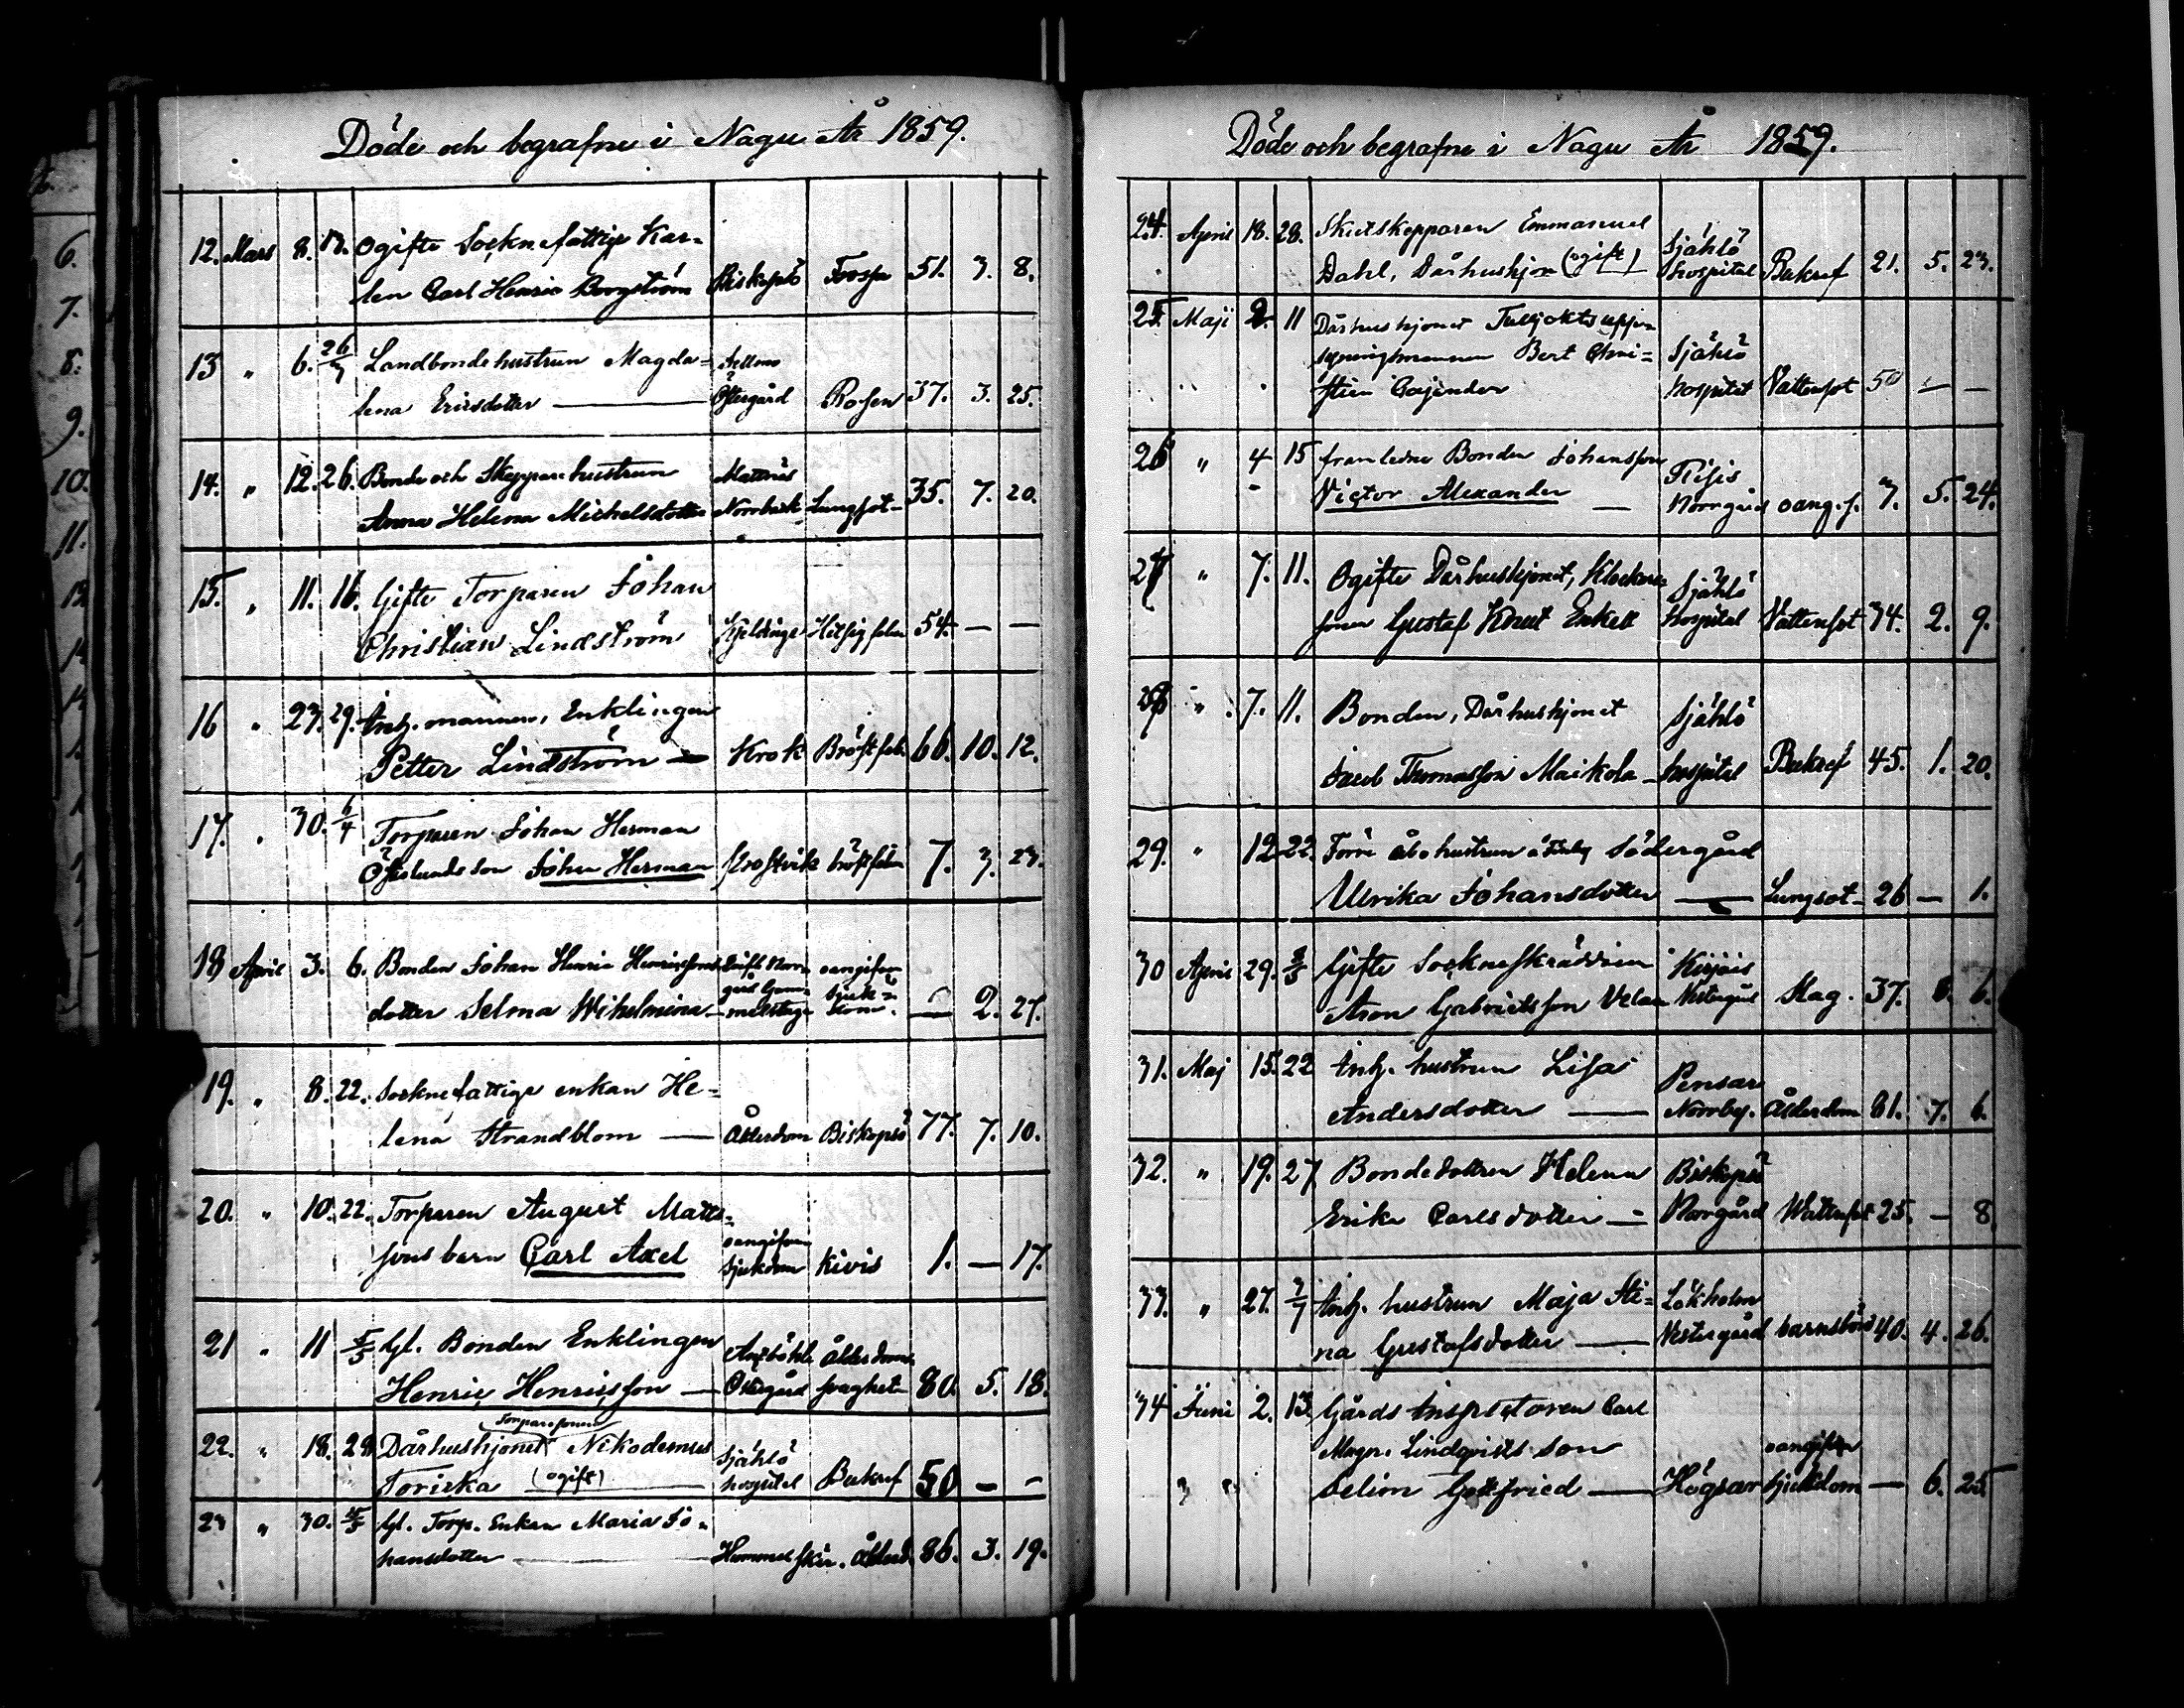 Döde och begrafne i Nagu År 1859.
12. Mars 8. 13. Ogifte Socknefattige Kar-
len Carl Henric Bergström Biskopsö Trosyn 51. 3. 8.
13 " 6. 26/3 Landbondehustrun Magda-
lena Ericsdotter — Östergård Rosen 37. 3. 25.
14. " 12. 26. Bonde och Skepparehustrun Mattnäs
Anna Helena Michelsdotter Norrback Lungsot 35. 7. 20.
15. " 11. 16. Gifte Torparen Johan
Christian Lindström Kjeldinge Hetsig feber 54. — —
16 " 23. 29. Inh. mannen, Enklingen
Petter Lindström — Krok Bröstfeb. 66. 10. 12.
17. " 30. 6/4 Torparen Johan Herman
Österlunds son Johan Herman Kroftvik bröstfeber 7. 3. 23.
18 April 3. 6. Bonden Johan Henric Henricssons oangifven
dotter Selma Wilhelmina sjukdom. — 2. 27.
19. " 8. 22. Socknefattige enkan He-
lena Strandblom — Ålderdom Biskopsö 77. 7. 10.
20. " 10. 22. Torparen August Matts-
sons barn Carl Axel oangifven sjukdom Kivis 1. — 17.
21 " 11 5/5 Gl. Bonden Enklingen Ålderdoms
Henric Henricsson — Östergård svaghet 80. 5. 18.
22. " 18. 28 Dårhushjonet Torparesonen Nikodemus Själö
Toriska (ogift) — hospital Benkref 50 — —
23 " 30. 15/5 Gl. Torp. Enkan Maria Jo-
hansdotter — Hummelskär. Ålderd. 86. 3. 19.
Döde och begrafne i Nagu År 1859.
24. April 18. 28. Skutskepparen Emmanuel Själö
Dahl, Dårhushjon (ogift) hospital Benkref 21. 5. 23.
25. Maji 2. 11 Dårhushjonet Tulljaktsuppsy-
syningsmannen Bert Chri- Själö
stian Cajander hospital Vattensot 50 — —
26 " 4 15 framledne Bonden Johanssons
Victor Alexander — Norrgård oang. s. 7. 5. 24.
27 " 7. 11. Ogifte Dårhushjonet, Klockare- Själö
sonen Gustaf Knut Enkell hospital Vattensot 34. 2. 9.
28 " 7. 11. Bonden, Dårhushjonet Själö
Jacob Thomasson Maikola — hospital Benkref 45. 1. 20.
29. " 12. 22. Förre åbohustrun å Finby Södergård
Ulrika Johansdotter — Lungsot — 26 — 1.
30 April 29. 8/5 Gifte Sockneskräddaren Kirjais
Aron Gabrielsson Velan Vestergård Slag. 37. 8. 6.
31. Maj 15. 22 Inh. hustrun Lisa Pensar
Andersdotter — Norrby. Ålderdom 81. 7. 6.
32. " 19. 27 Bondedottren Helena Biskopsö
Erika Carlsdotter — Norrgård Wattensot 25. — 8.
33. " 27. 7/7 Inh. hustrun Maja Sti- Lökholm
na Gustafsdotter — Vestergård barnsbörd 40. 4. 26.
34 Juni 2. 13. Gårds Inspectoren Carl
Magn. Lindqvists son oangifven
Selim Gottfried — Högsar sjukdom — 6. 25.